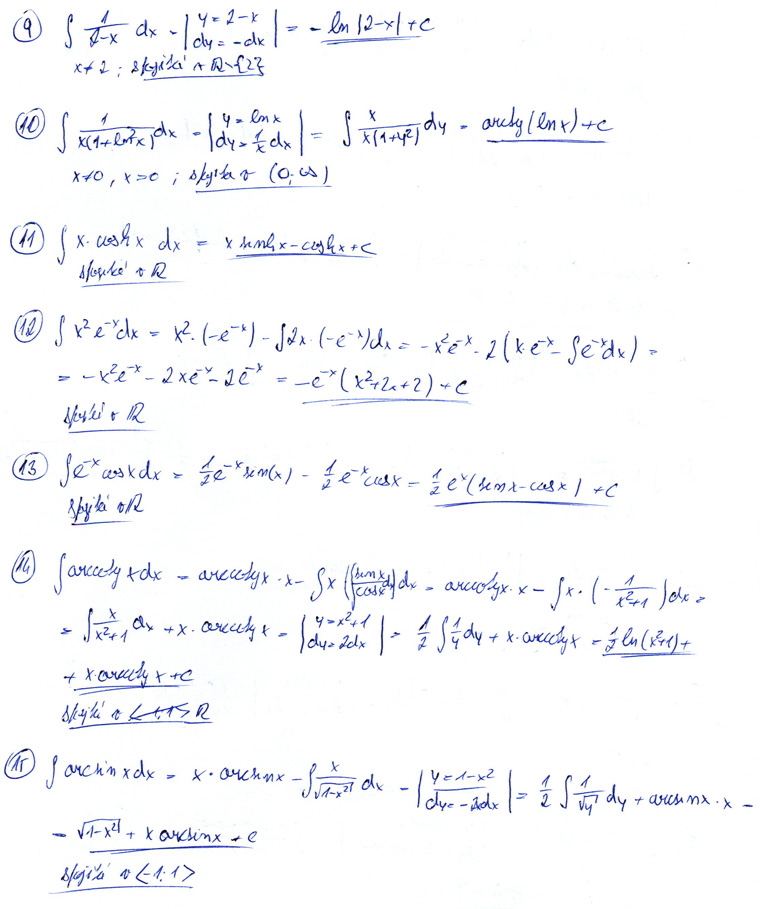 (9) ∫ 1/(2-x) dx = |y = 2-x, dy = -dx| = -ln|2-x| + c
x ≠ 2 ; spojitá v R∖{2}
(10) ∫ 1/(x(1+ln²x)) dx = |y = ln x, dy = 1/x dx| = ∫ x/(x(1+y²)) dy = arctg(ln x) + c
x ≠ 0, x > 0 ; spojitá v (0; ∞)
(11) ∫ x·cosh x dx = x sinh x - cosh x + c
spojitá v R
(12) ∫ x² e^-x dx = x²·(-e^-x) - ∫ 2x·(-e^-x) dx = -x² e^-x - 2(x·e^-x - ∫ e^-x dx) =
= -x² e^-x - 2x e^-x - 2e^-x = -e^-x (x² + 2x + 2) + c
spojitá v R
(13) ∫ e^-x cos x dx = 1/2 e^-x sin(x) - 1/2 e^-x cos x = 1/2 e^-x (sin x - cos x) + c
spojitá v R
(14) ∫ arccotg x dx = arccotg x · x - ∫ x dx = arccotg x · x - ∫ x·(-1/(x²+1)) dx =
= ∫ x/(x²+1) dx + x·arccotg x = |y = x²+1, dy = 2dx| = 1/2 ∫ 1/y dy + x·arccotg x = 1/2 ln(x²+1) +
+ x·arccotg x + c
spojitá v R
(15) ∫ arcsin x dx = x·arcsin x - ∫ x/√(1-x²) dx = |y = 1-x², dy = -2dx| = 1/2 ∫ 1/√y dy + arcsin x · x =
= √(1-x²) + x arcsin x + c
spojitá v <-1; 1>